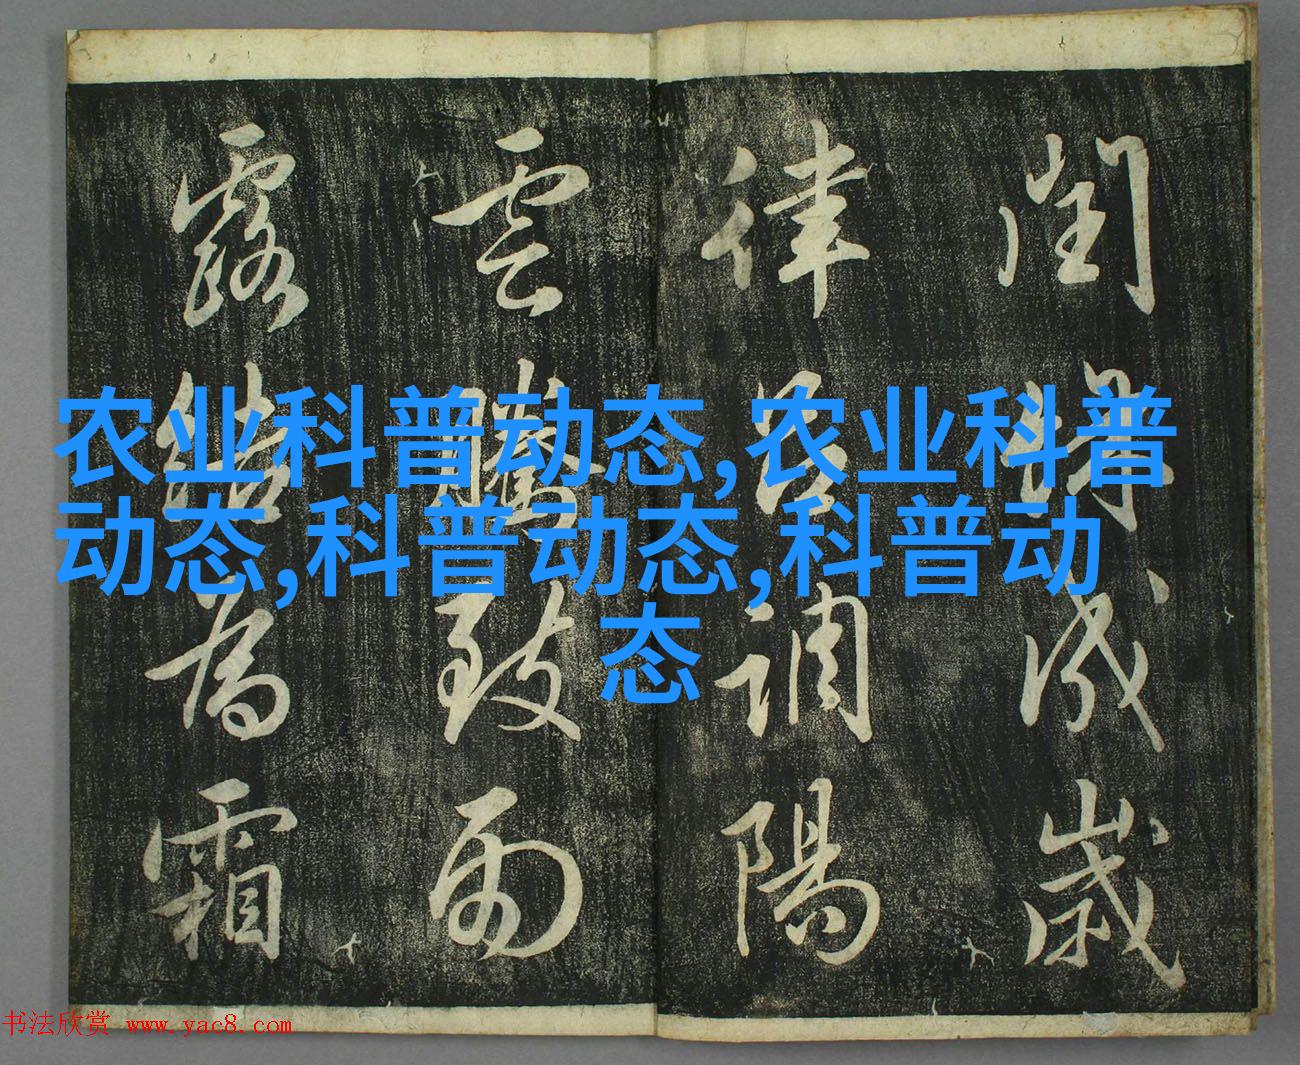 閏餘成歲
律呂調陽
雲騰致雨
露結為霜
农业科普动态,农业科普
动态,科普动态,科普动
态
书法欣赏 www.yac8.com